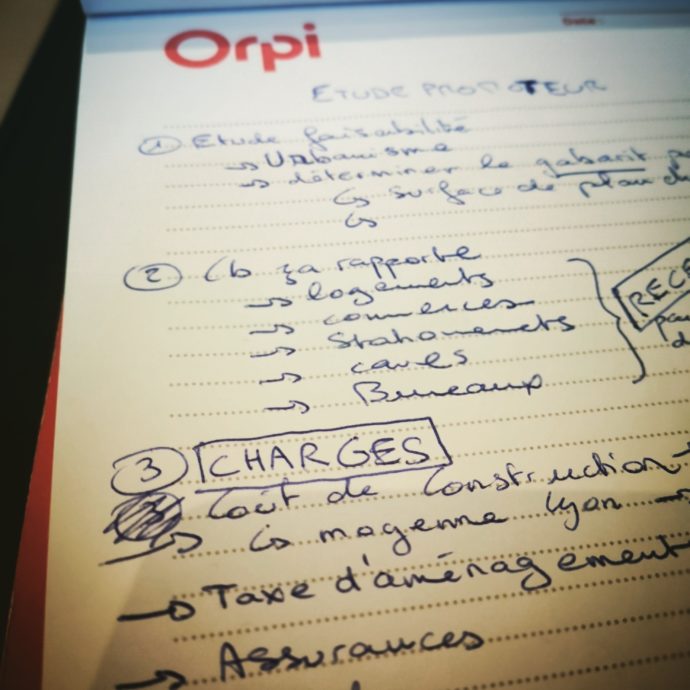 Orpi
Date:
ETUDE PROMOTEUR
① Etude faisabilité
→ Urbanisme
→ déterminer le gabarit
↳ surface de planch
↳
② Cb ça rapporte
→ logements
→ commerces
→ Stationnements
→ caves
→ Bureaux
RECE
③ CHARGES
Coût de construction →
↳ moyenne Lyon →
→ Taxe d'aménagement
→ Assurances